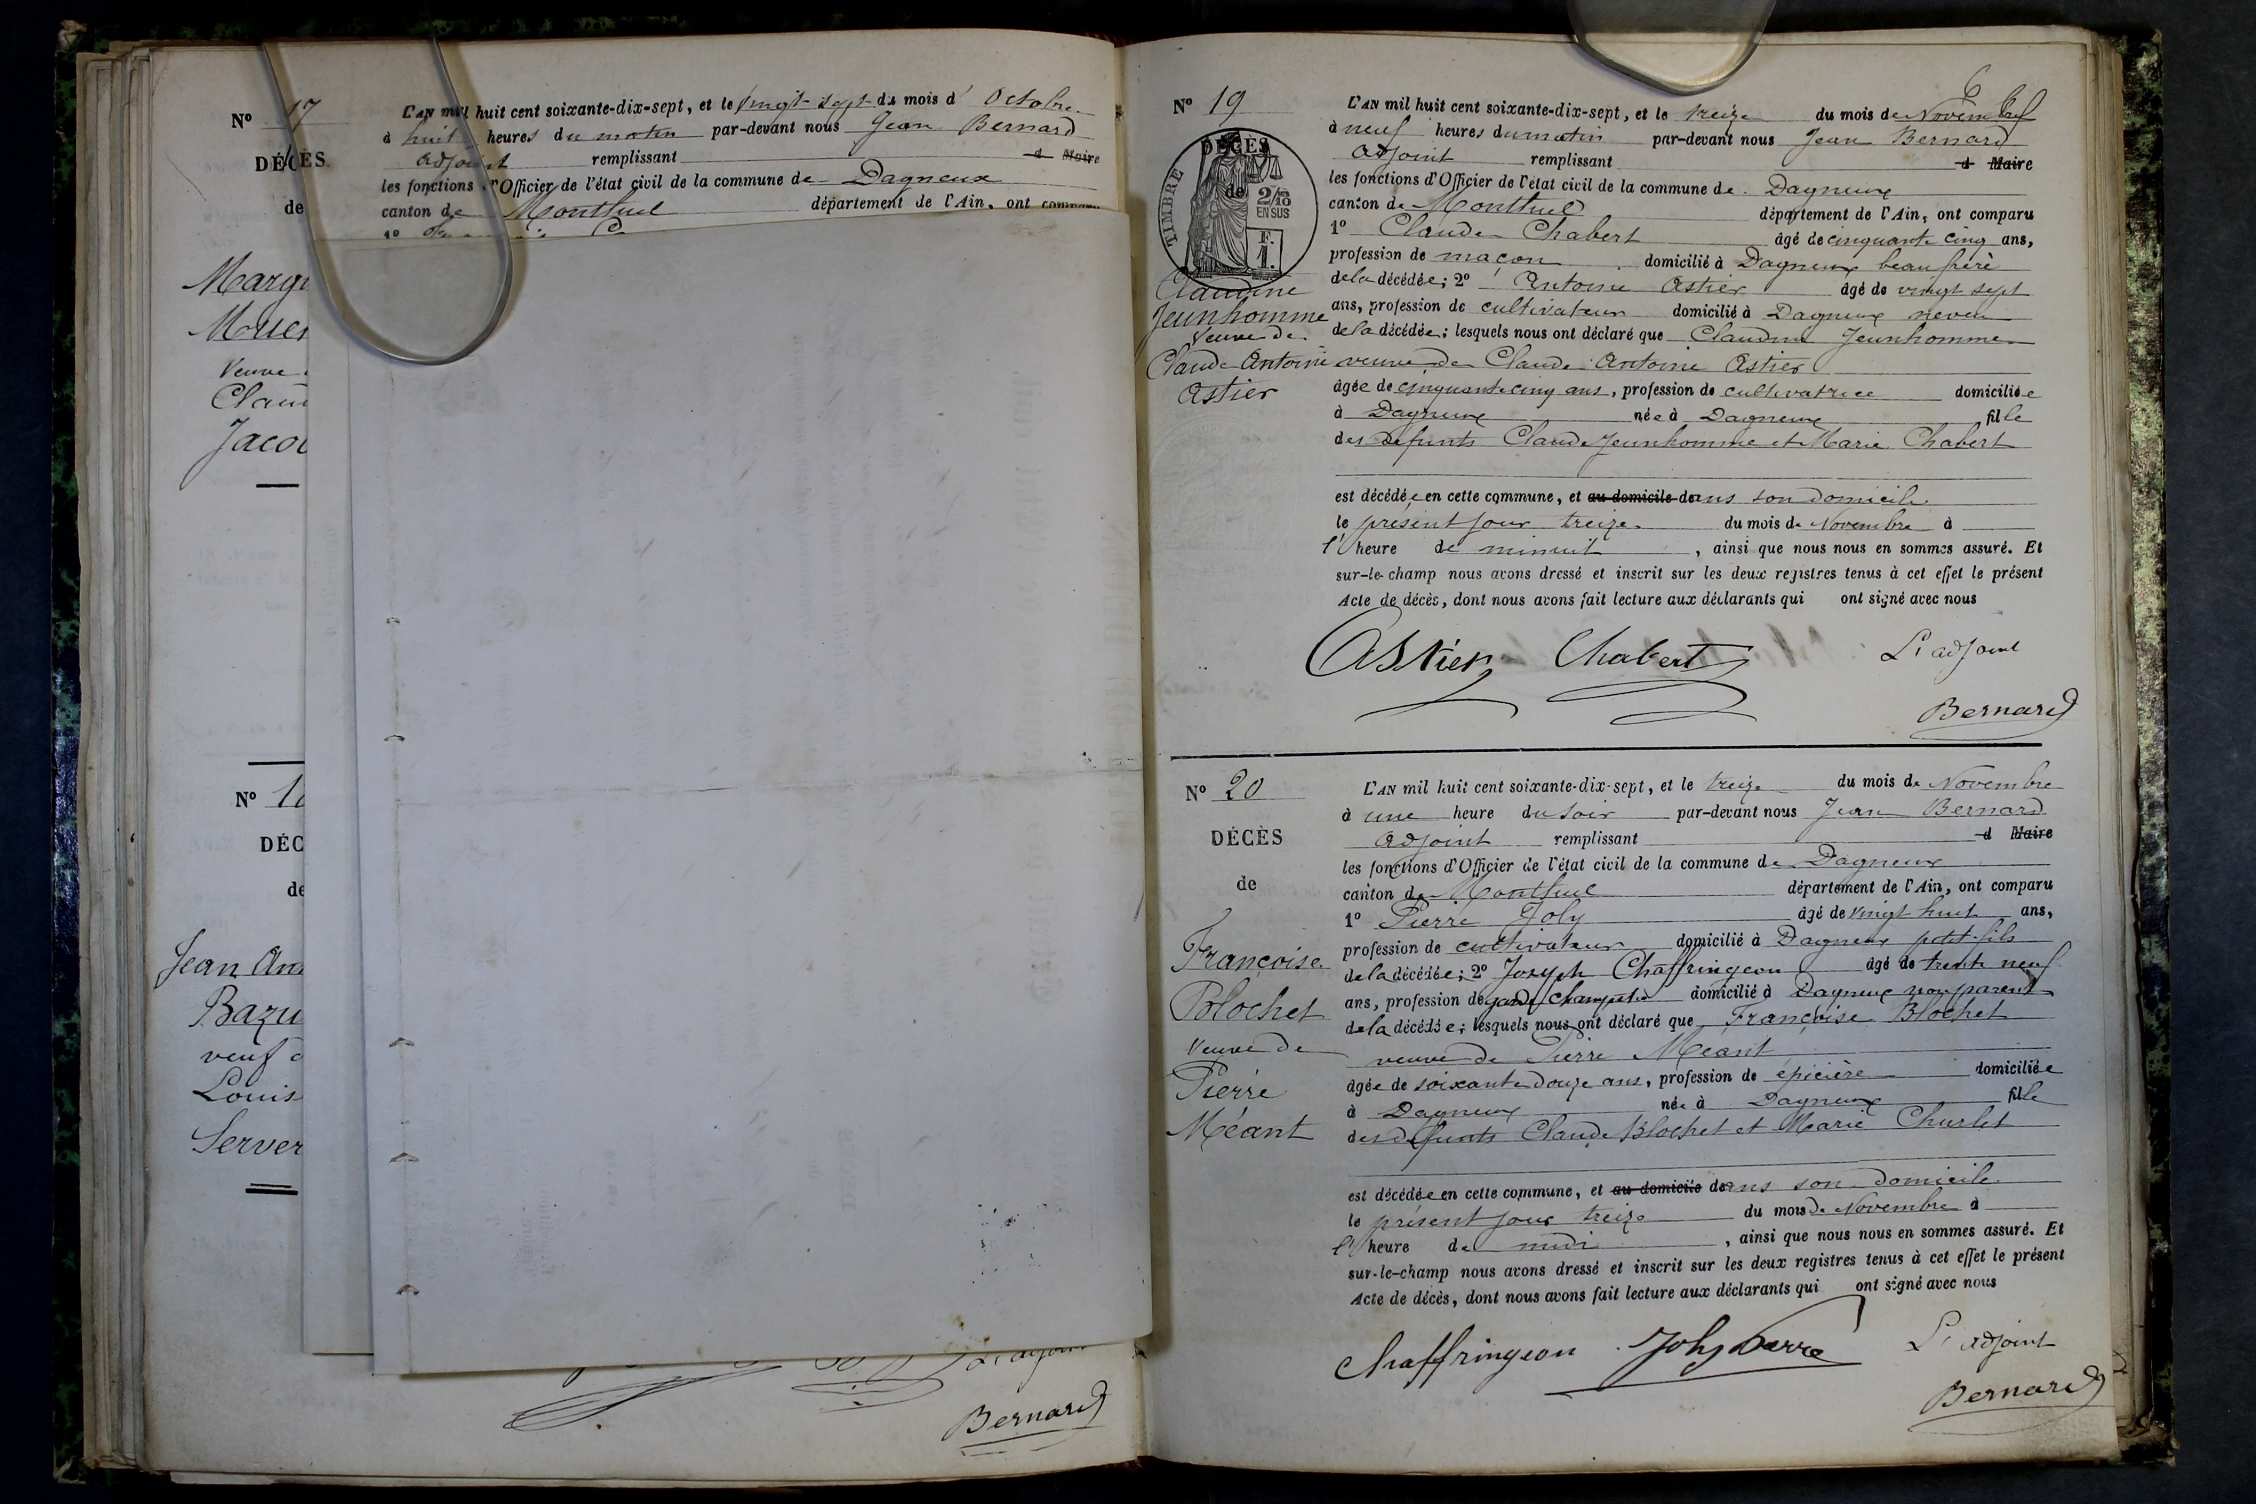 N° 17
DÉCÈS
de
Veuve
Jean
veuf
Louis
N°
L'AN mil huit cent soixante-dix-sept, et le vingt sept du mois d' Octobre
à huit heures du matin par-devant nous Jean Bernard
adjoint remplissant d Maire
les fonctions d'Officier de l'état civil de la commune de Dagneux
canton de Montluel département de l'Ain, ont comparu
1°
L'adjoint
Bernard
N° 19
DÉCÈS
de
TIMBRE
2/10
EN SUS
F.
1.
Claudine
Jeunhomme
veuve de
Claude Antoine
Astier
L'AN mil huit cent soixante-dix-sept, et le treize du mois de Novembre
à neuf heures du matin par-devant nous Jean Bernard
adjoint remplissant d Maire
les fonctions d'Officier de l'état civil de la commune de Dagneux
canton de Montluel département de l'Ain, ont comparu
1° Claude Chabert âgé de cinquante cinq ans,
profession de maçon domicilié à Dagneux beau frère
de la décédée; 2° Antoine Astier âgé de vingt sept
ans, profession de cultivateur domicilié à Dagneux neveu
de la décédée; lesquels nous ont déclaré que Claudine Jeunhomme
veuve de Claude Antoine Astier
âgée de cinquante cinq ans, profession de cultivatrice domiciliée
à Dagneux née à Dagneux fille
des défunts Claude Jeunhomme et Marie Chabert
est décédée en cette commune, et au domicile dans son domicile
le présent jour treize du mois de Novembre à
l'heure de minuit, ainsi que nous nous en sommes assuré. Et
sur-le-champ nous avons dressé et inscrit sur les deux registres tenus à cet effet le présent
Acte de décès, dont nous avons fait lecture aux déclarants qui ont signé avec nous
Astier Chabert L'adjoint
Bernard
N° 20
DÉCÈS
de
Françoise
Blochet
veuve de
Pierre
Méant
L'AN mil huit cent soixante-dix-sept, et le treize du mois de Novembre
à une heure du soir par-devant nous Jean Bernard
adjoint remplissant d Maire
les fonctions d'Officier de l'état civil de la commune de Dagneux
canton de Montluel département de l'Ain, ont comparu
1° Pierre Joly âgé de vingt huit ans,
profession de cultivateur domicilié à Dagneux petit fils
de la décédée; 2° Joseph Chaffringeon âgé de trente neuf
ans, profession de garde champêtre domicilié à Dagneux non parent
de la décédée; lesquels nous ont déclaré que Françoise Blochet
veuve de Pierre Méant
âgée de soixante douze ans, profession de épicière domiciliée
à Dagneux née à Dagneux fille
des défunts Claude Blochet et Marie Churlet
est décédée en cette commune, et au domicile dans son domicile
le présent jour treize du mois de Novembre à
l'heure de midi, ainsi que nous nous en sommes assuré. Et
sur-le-champ nous avons dressé et inscrit sur les deux registres tenus à cet effet le présent
Acte de décès, dont nous avons fait lecture aux déclarants qui ont signé avec nous
Chaffringeon Joly Pierre L'adjoint
Bernard